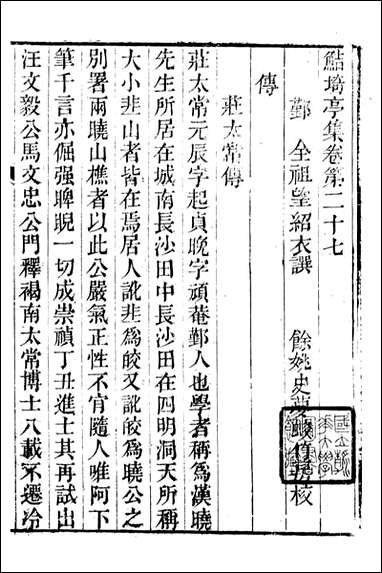 鮚埼亭集卷第二十七
鄞　全祖望紹衣譔　　餘姚史夢蛟　校
傳
莊太常傳
莊太常元辰字起貞晚字頑菴鄞人也學者稱爲漢曉
先生所居在城南長沙田中長沙田在四明洞天所稱
大小韭山者皆在焉居人訛韭爲皎又訛皎爲曉公之
別署兩曉山樵者以此公嚴氣正性不肯隨人唯阿下
筆千言亦倔强睥睨一切成崇禎丁丑進士其再試出
汪文毅公馬文忠公門釋褐南太常博士八載不遷冷